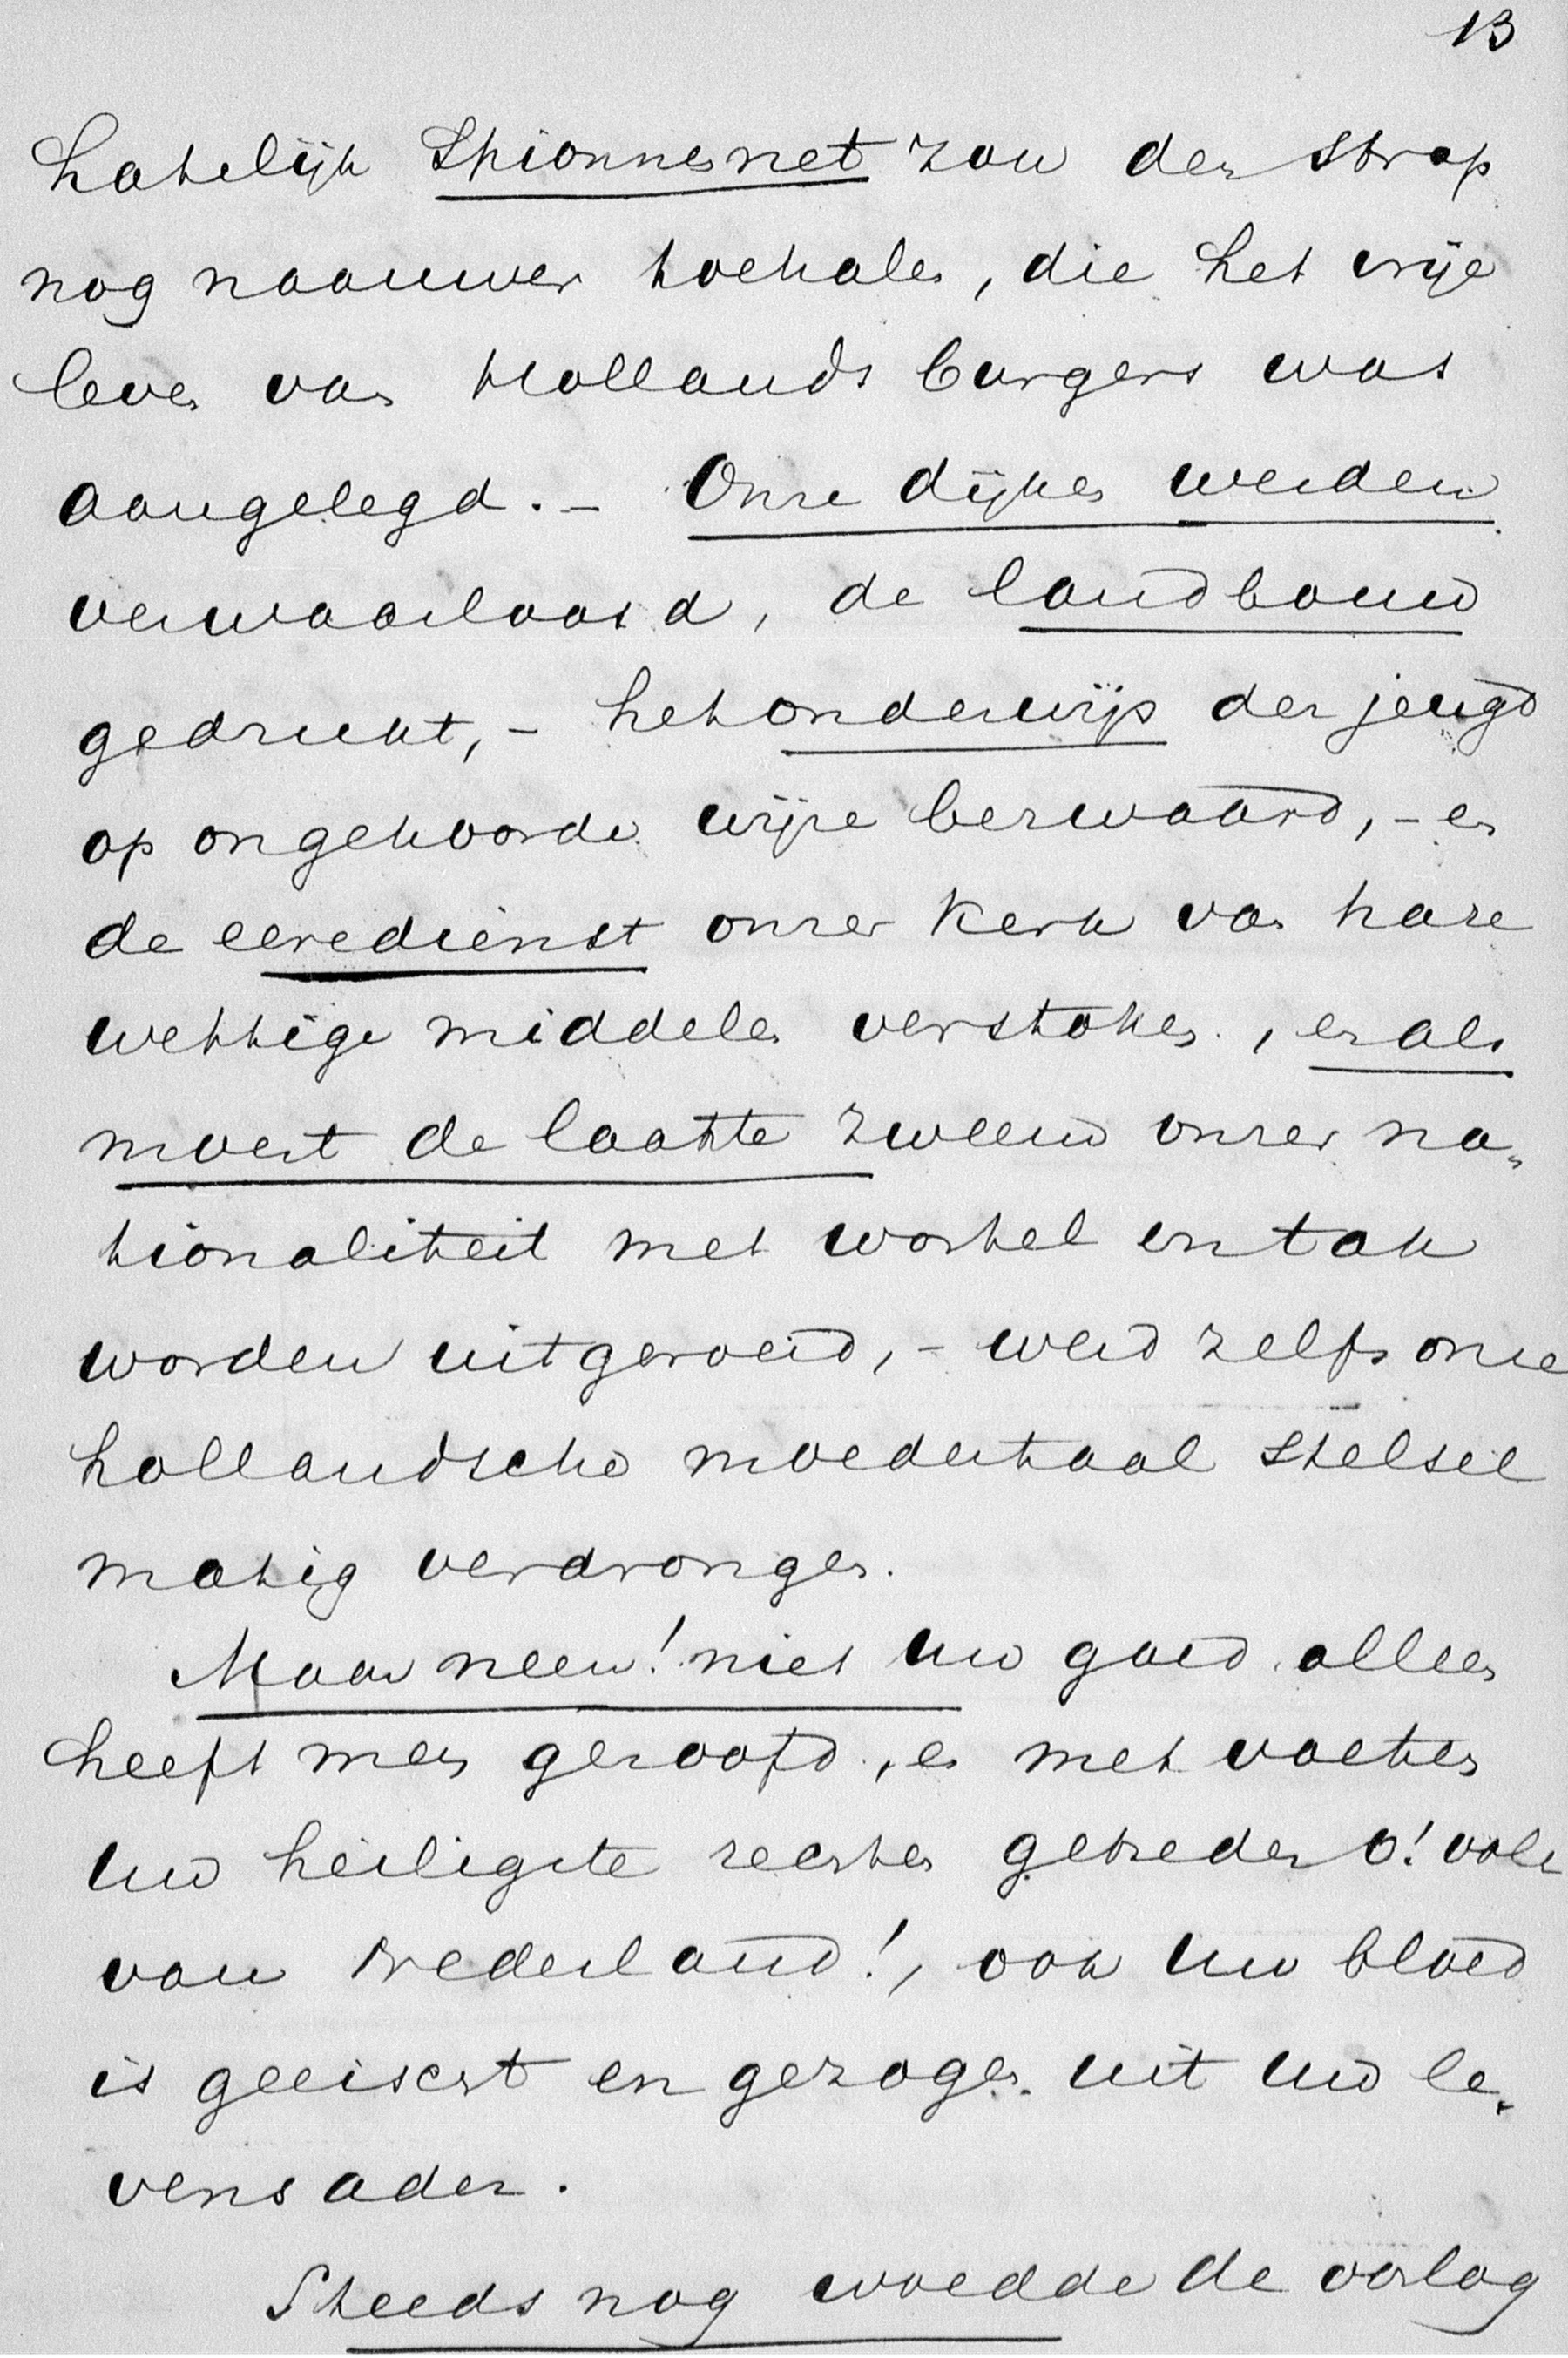 13
hatelijk Spionnennet zou den strop
nog naauwer toehalen, die het vrije
leven van Hollands burgers was
aangelegd. – Onze dijken werden
verwaarloosd, de landbouw
gedrukt, – het onderwijs der jeugd
op ongehoorde wijze bezwaard, – en
de eeredienst onzer Kerk van hare
wettige middelen verstoken, en als
moest de laatste zweem onzer na„
tionaliteit met wortel en tak
worden uitgeroeid, – werd zelfs onze
hollandsche moedertaal stelsel
matig verdrongen.
Maar neen! niet uw goed alleen
heeft men geroofd, en met voeten
uw heiligste rechten getreden o! volk
van Nederland!, ook uw bloed
is geeischt en gezogen uit uw le„
vensader.
Steeds nog woedde de oorlog